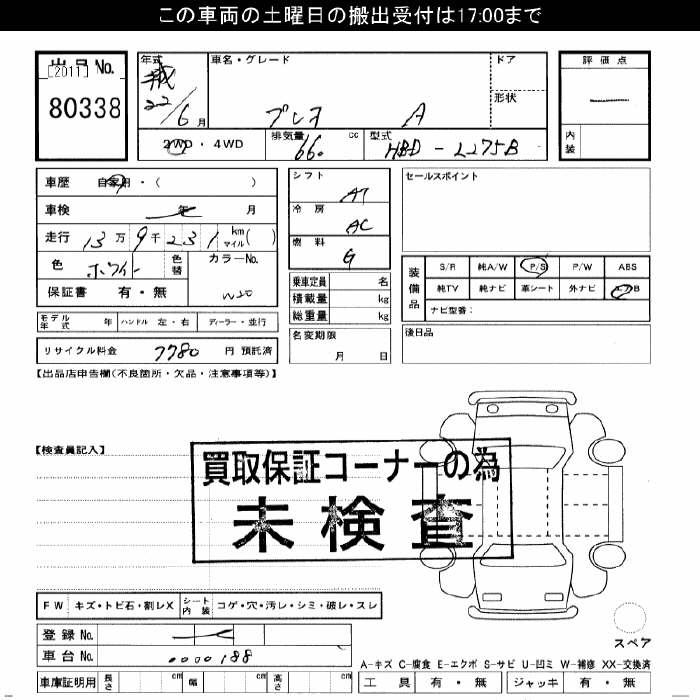 この車両の土曜日の搬出受付は17:00まで
出品No.
[2011]
80338
年式
22/6月
車名・グレード
プレオ A
ドア
形状
2WD・4WD
排気量 660 cc
型式 HBD-L275B
評価点
内装
車歴 自家用・( )
車検 年 月
走行 13万9千231 km マイル( )
色 ホワイト 色替
カラーNo. W20
保証書 有・無
モデル年式 年 ハンドル 左・右 ディーラー・並行
リサイクル料金 7780 円 預託済
シフト AT
冷房 AC
燃料 G
乗車定員 名
積載量 kg
総重量 kg
名変期限
月 日
セールスポイント
装備品
S/R 純A/W P/S P/W ABS
純TV 純ナビ 革シート 外ナビ エアB
ナビ型番:
後日品
【出品店申告欄(不良箇所・欠品・注意事項等)】
【検査員記入】
買取保証コーナーの為
未検査
FW キズ・トビ石・割レX シート内装 コゲ・穴・汚レ・シミ・破レ・スレ
登録No.
車台No. 0000188
車庫証明用 長さ cm 幅 cm 高さ cm
スペア
A-キズ C-腐食 E-エクボ S-サビ U-凹ミ W-補修 XX-交換済
工具 有・無 ジャッキ 有・無